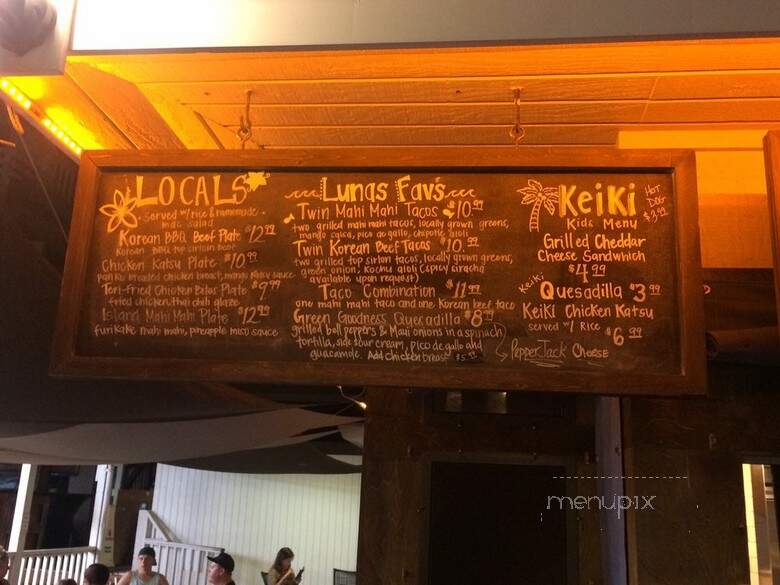 LOCALS
Served w/ rice & homemade
mac salad
Korean BBQ Beef Plate $12.99
Korean BBQ top sirloin beef
Chicken Katsu Plate $10.99
panko breaded chicken breast, mango katsu sauce
Teri-Fried Chicken Plate $9.99
fried chicken, thai chili glaze
Island Mahi Mahi Plate $12.99
furikake mahi mahi, pineapple miso sauce
Lunas Fav's
Twin Mahi Mahi Tacos $10.99
two grilled mahi mahi tacos, locally grown greens,
mango salsa, pico de gallo, chipotle aioli
Twin Korean Beef Tacos $10.99
two grilled top sirloin tacos, locally grown greens,
green onion, kochu aioli (spicy siracha
available upon request)
Taco Combination $11.99
one mahi mahi taco and one Korean beef taco
Green Goodness Quesadilla $8.99
grilled bell peppers & Maui onions in a spinach
tortilla, side sour cream, pico de gallo and
guacamole. Add chicken breast $5.99
KeiKi
Kids Menu
HOT
DOG
$3.99
Grilled Cheddar
Cheese Sandwhich
$4.99
Keiki
Quesadilla $3.99
KeiKi Chicken Katsu
served w/ Rice $6.99
PepperJack Cheese
menupix